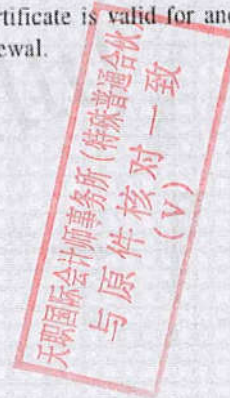 rtificate is valid for an
ewal.
天职国际会计师事务所（特殊普通合伙）
与原件核对一致
（V）